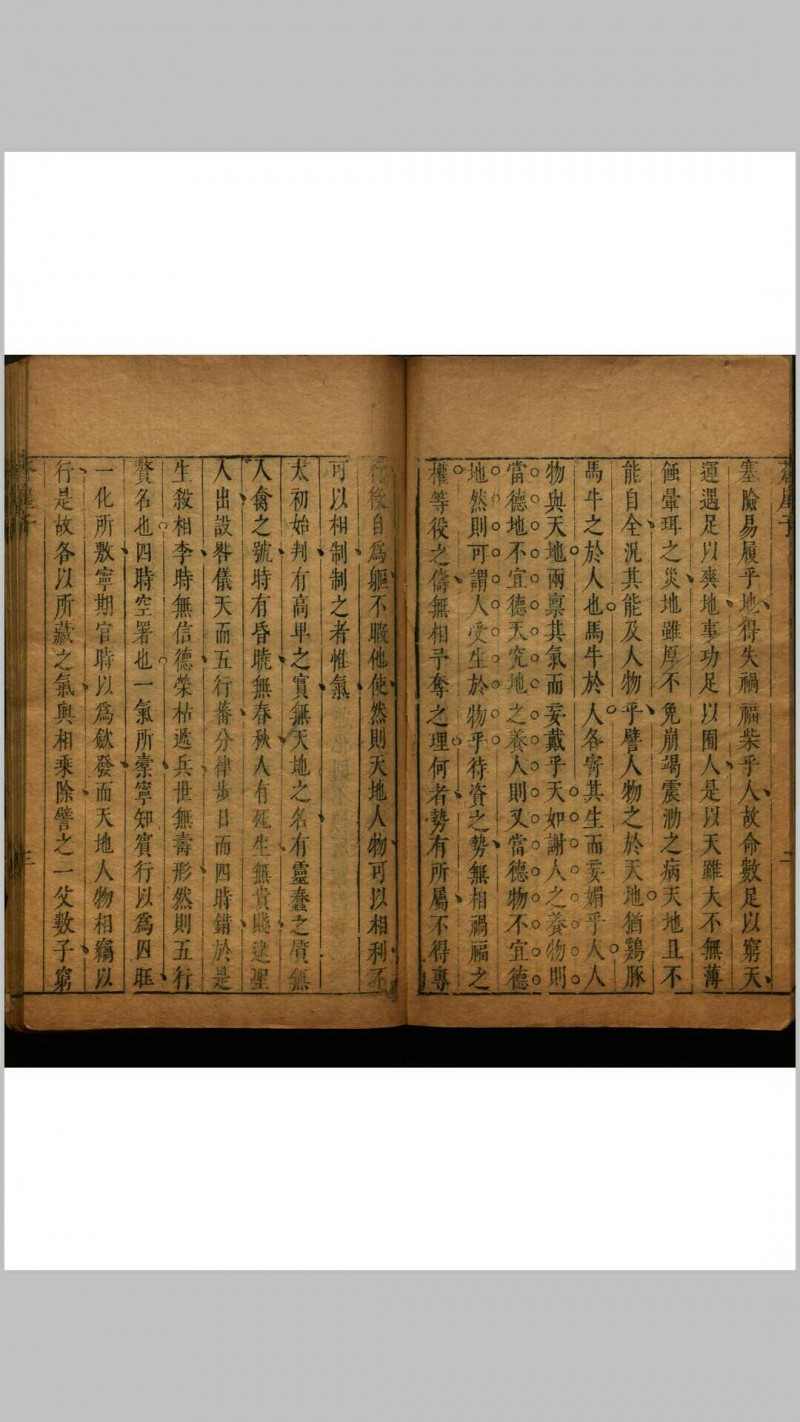 塞險易履乎地得失禍福柴乎人故命數足以窮天
運遇足以爽地事功足以囿人是以天雖大不無薄
蝕暈珥之災地雖厚不免崩竭震泐之病天地且不
能自全況其能及人物乎譬人物之於天地猶鷄豚
馬牛之於人也馬牛於人各寄其生而妄媚乎人人
物與天地兩禀其氣而妄戴乎天如謝人之養物則
當德地不宜德天究地之養人則又當德物不宜德
地然則可謂人受生於物乎待資之勢無相禍福之
權等役之儔無相予奪之理何者勢有所屬不得專
後自為軀不暇他使然則天地人物可以相利不
可以相制制之者惟氣
太初始判有高卑之實無天地之名有靈蠢之質無
人禽之號時有昏曉無春秋人有死生無貴賤逮聖
人出設晷儀天而五行蕃分律步日而四時錯於是
生殺相李時無信德榮枯遞兵世無壽形然則五行
贅名也四時空署也一氣所橐寧知賓行以為四
一化所敷寧期官時以為歛發而天地人物相竊以
行是故各以所藏之氣與相乘除譬之一父數子窮
二
三